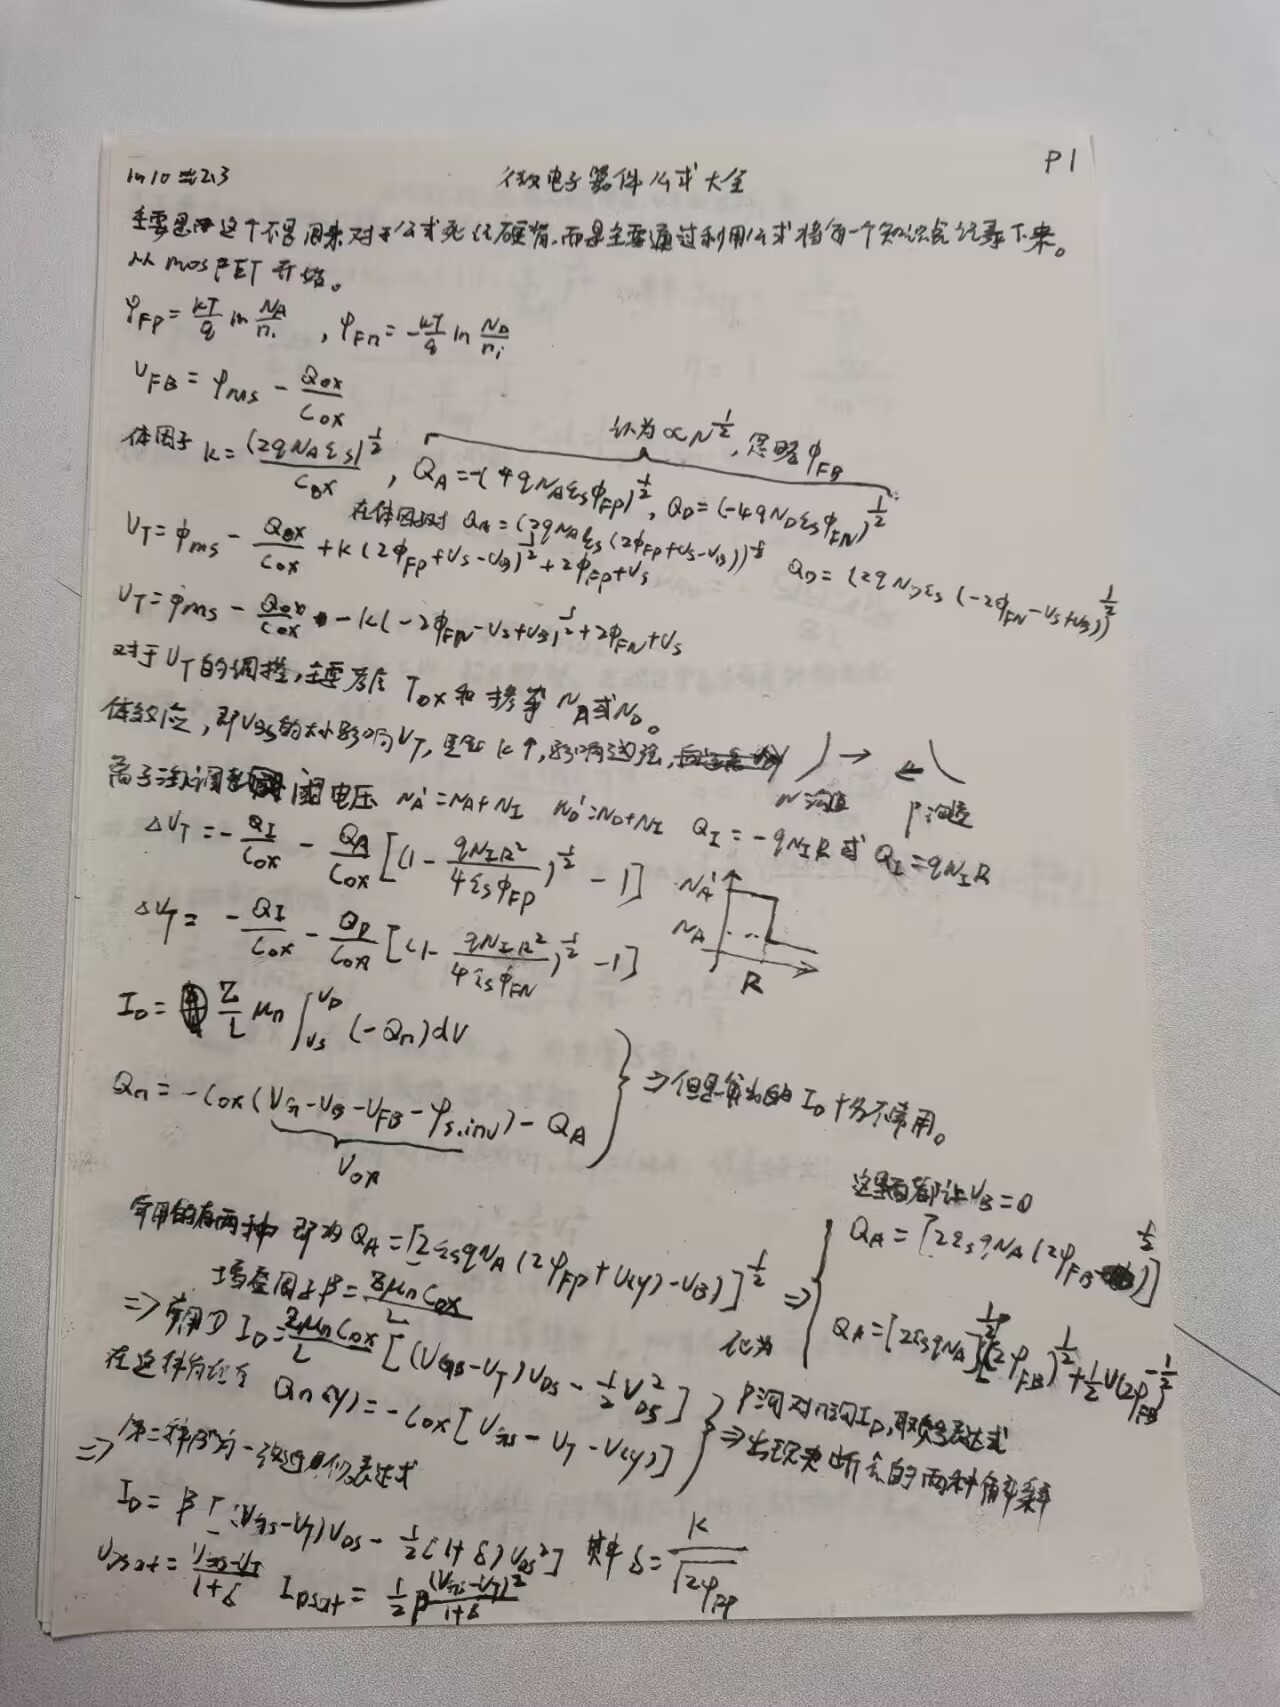 P1
ln10≈2.3 微电子器件公式大全
主要思想这个不是用来对于公式死记硬背,而是主要通过利用公式将每一个知识点记录下来。
从 mosFET 开始。
φFp = kT/q ln NA/ni , φFn = -kT/q ln ND/ni
VFB = φms - Qox/Cox
认为∝N^1/2, 忽略φFB
体因子 k = (2qNAεs)^1/2/Cox , QA = -(4qNAεsφFp)^1/2, QD = (-4qNDεsφFN)^1/2
在体因子时 QA = (2qNAεs(2φFp+VS-VB))^1/2 QD = (2qNDεs(-2φFN-VS+VB))^1/2
VT = φms - Qox/Cox + k(2φFp+VS-VB)^1/2 + 2φFp+VS
VT = φms - Qox/Cox - k(-2φFN-VS+VB)^1/2 + 2φFN+VS
对于VT的调控,主要考虑 Tox和掺杂 NA或ND。
体效应,即VBS的大小影响VT, k↑,影响越强,
N沟道 P沟道
离子注入调整阈电压 NA'=NA+NI ND'=ND+NI QI = -qNIR 或 QI = qNIR
ΔVT = - QI/Cox - QA/Cox [(1 - qNIR²/4εsφFp)^1/2 - 1]
NA'
NA
R
ΔVT = - QI/Cox - QD/Cox [(1 - qNIR²/4εsφFN)^1/2 - 1]
ID = Z/L μn ∫VS^VD (-Qn)dV
Qn = -Cox(VG-VB-VFB-φs.inv) - QA
Vox
⇒但是算出的 ID 十分不常用。
这里面都让VB=0
常用的有两种 即为 QA = [2εsqNA(2φFp+V(y)-VB)]^1/2 ⇒
QA = [2εsqNA(2φFB)]^1/2
增益因子β = Zμn Cox/L
化为
QA = [2εsqNA]^1/2[(2φFB)^1/2 + 1/2 V(2φFB)^-1/2
⇒常用① ID = Zμn Cox/L [(VGB-VT)VDS - 1/2 VDS²]
在这种 Qn(y) = -Cox[VGS - VT - V(y)]
P沟对n沟ID,取负号表达式
⇒出现夹断点的两种解释
⇒第二种 表达式
ID = β[(VGS-VT)VDS - 1/2(1+δ)VDS²] 其中δ = K/√2φFP
VDsat = VGS-VT/1+δ IDsat = 1/2 β (VGS-VT)²/1+δ